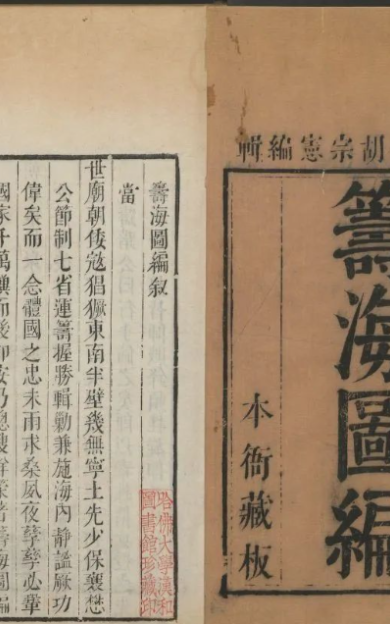 胡宗憲編輯
籌海圖編
本衙藏板
籌海圖編叙
當
世廟朝倭寇猖獗東南半壁幾無寧土先少保襄懋
公節制七省運籌握勝輯勦兼施海內靜謐厥功
偉矣而一念體國之忠未雨求桑夙夜孳孳必鞏
國家千萬禩而後即安乃總群策著籌海圖編
哈佛大學漢和
圖書館珍藏印